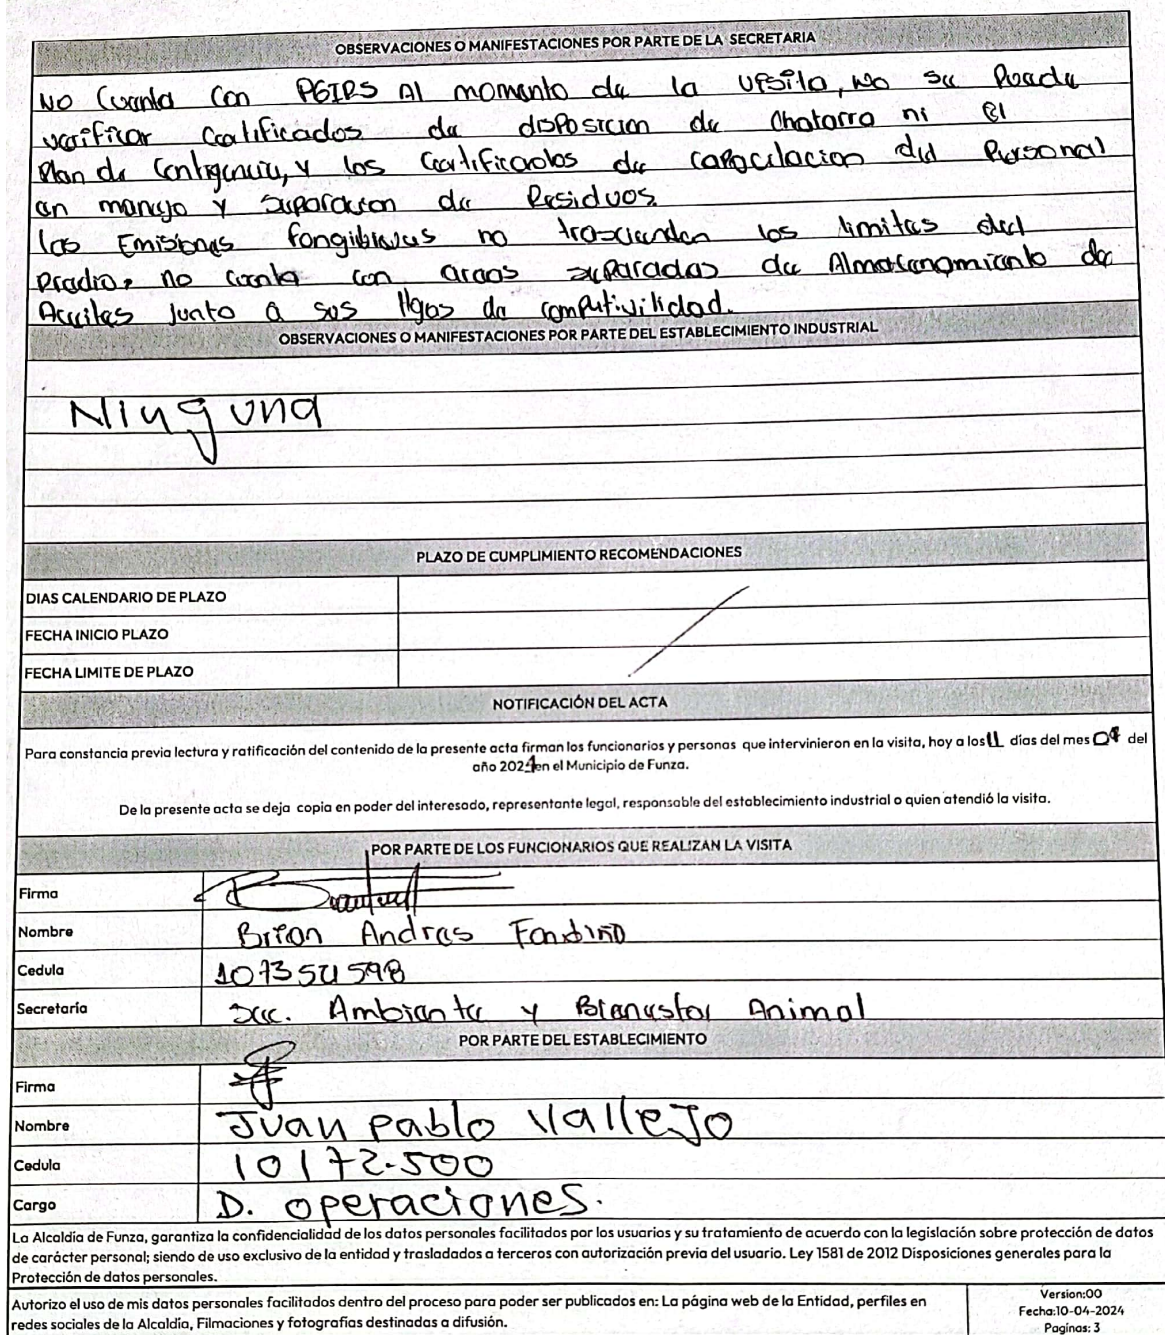 OBSERVACIONES O MANIFESTACIONES POR PARTE DE LA SECRETARIA
No Cuenta Con PGIRS Al momento de la visita, No se Puede
verificar Certificados de disposicion de Chatarra ni El
Plan de Contigencia, y los Certificados de capacitacion del Personal
en manejo y separacion de Residuos.
las Emisiones no trascienden los limites del
Predio, no cuenta con areas separadas de Almacenamiento de
Aceites junto a sus de
OBSERVACIONES O MANIFESTACIONES POR PARTE DEL ESTABLECIMIENTO INDUSTRIAL
Ninguna
PLAZO DE CUMPLIMIENTO RECOMENDACIONES
DIAS CALENDARIO DE PLAZO
FECHA INICIO PLAZO
FECHA LIMITE DE PLAZO
NOTIFICACIÓN DEL ACTA
Para constancia previa lectura y ratificación del contenido de la presente acta firman los funcionarios y personas que intervinieron en la visita, hoy a los 11 días del mes del
año 2024 en el Municipio de Funza.
De la presente acta se deja copia en poder del interesado, representante legal, responsable del establecimiento industrial o quien atendió la visita.
POR PARTE DE LOS FUNCIONARIOS QUE REALIZAN LA VISITA
Firma
Nombre Brian Andres Fandiño
Cedula
Secretaría Sec. Ambiente y Bienestar Animal
POR PARTE DEL ESTABLECIMIENTO
Firma
Nombre Juan Pablo Vallejo
Cedula 10172.500
Cargo D. operaciones.
La Alcaldía de Funza, garantiza la confidencialidad de los datos personales facilitados por los usuarios y su tratamiento de acuerdo con la legislación sobre protección de datos
de carácter personal; siendo de uso exclusivo de la entidad y trasladados a terceros con autorización previa del usuario. Ley 1581 de 2012 Disposiciones generales para la
Protección de datos personales.
Autorizo el uso de mis datos personales facilitados dentro del proceso para poder ser publicados en: La página web de la Entidad, perfiles en
redes sociales de la Alcaldía, Filmaciones y fotografías destinadas a difusión.
Version:00
Fecha:10-04-2024
Paginas: 3